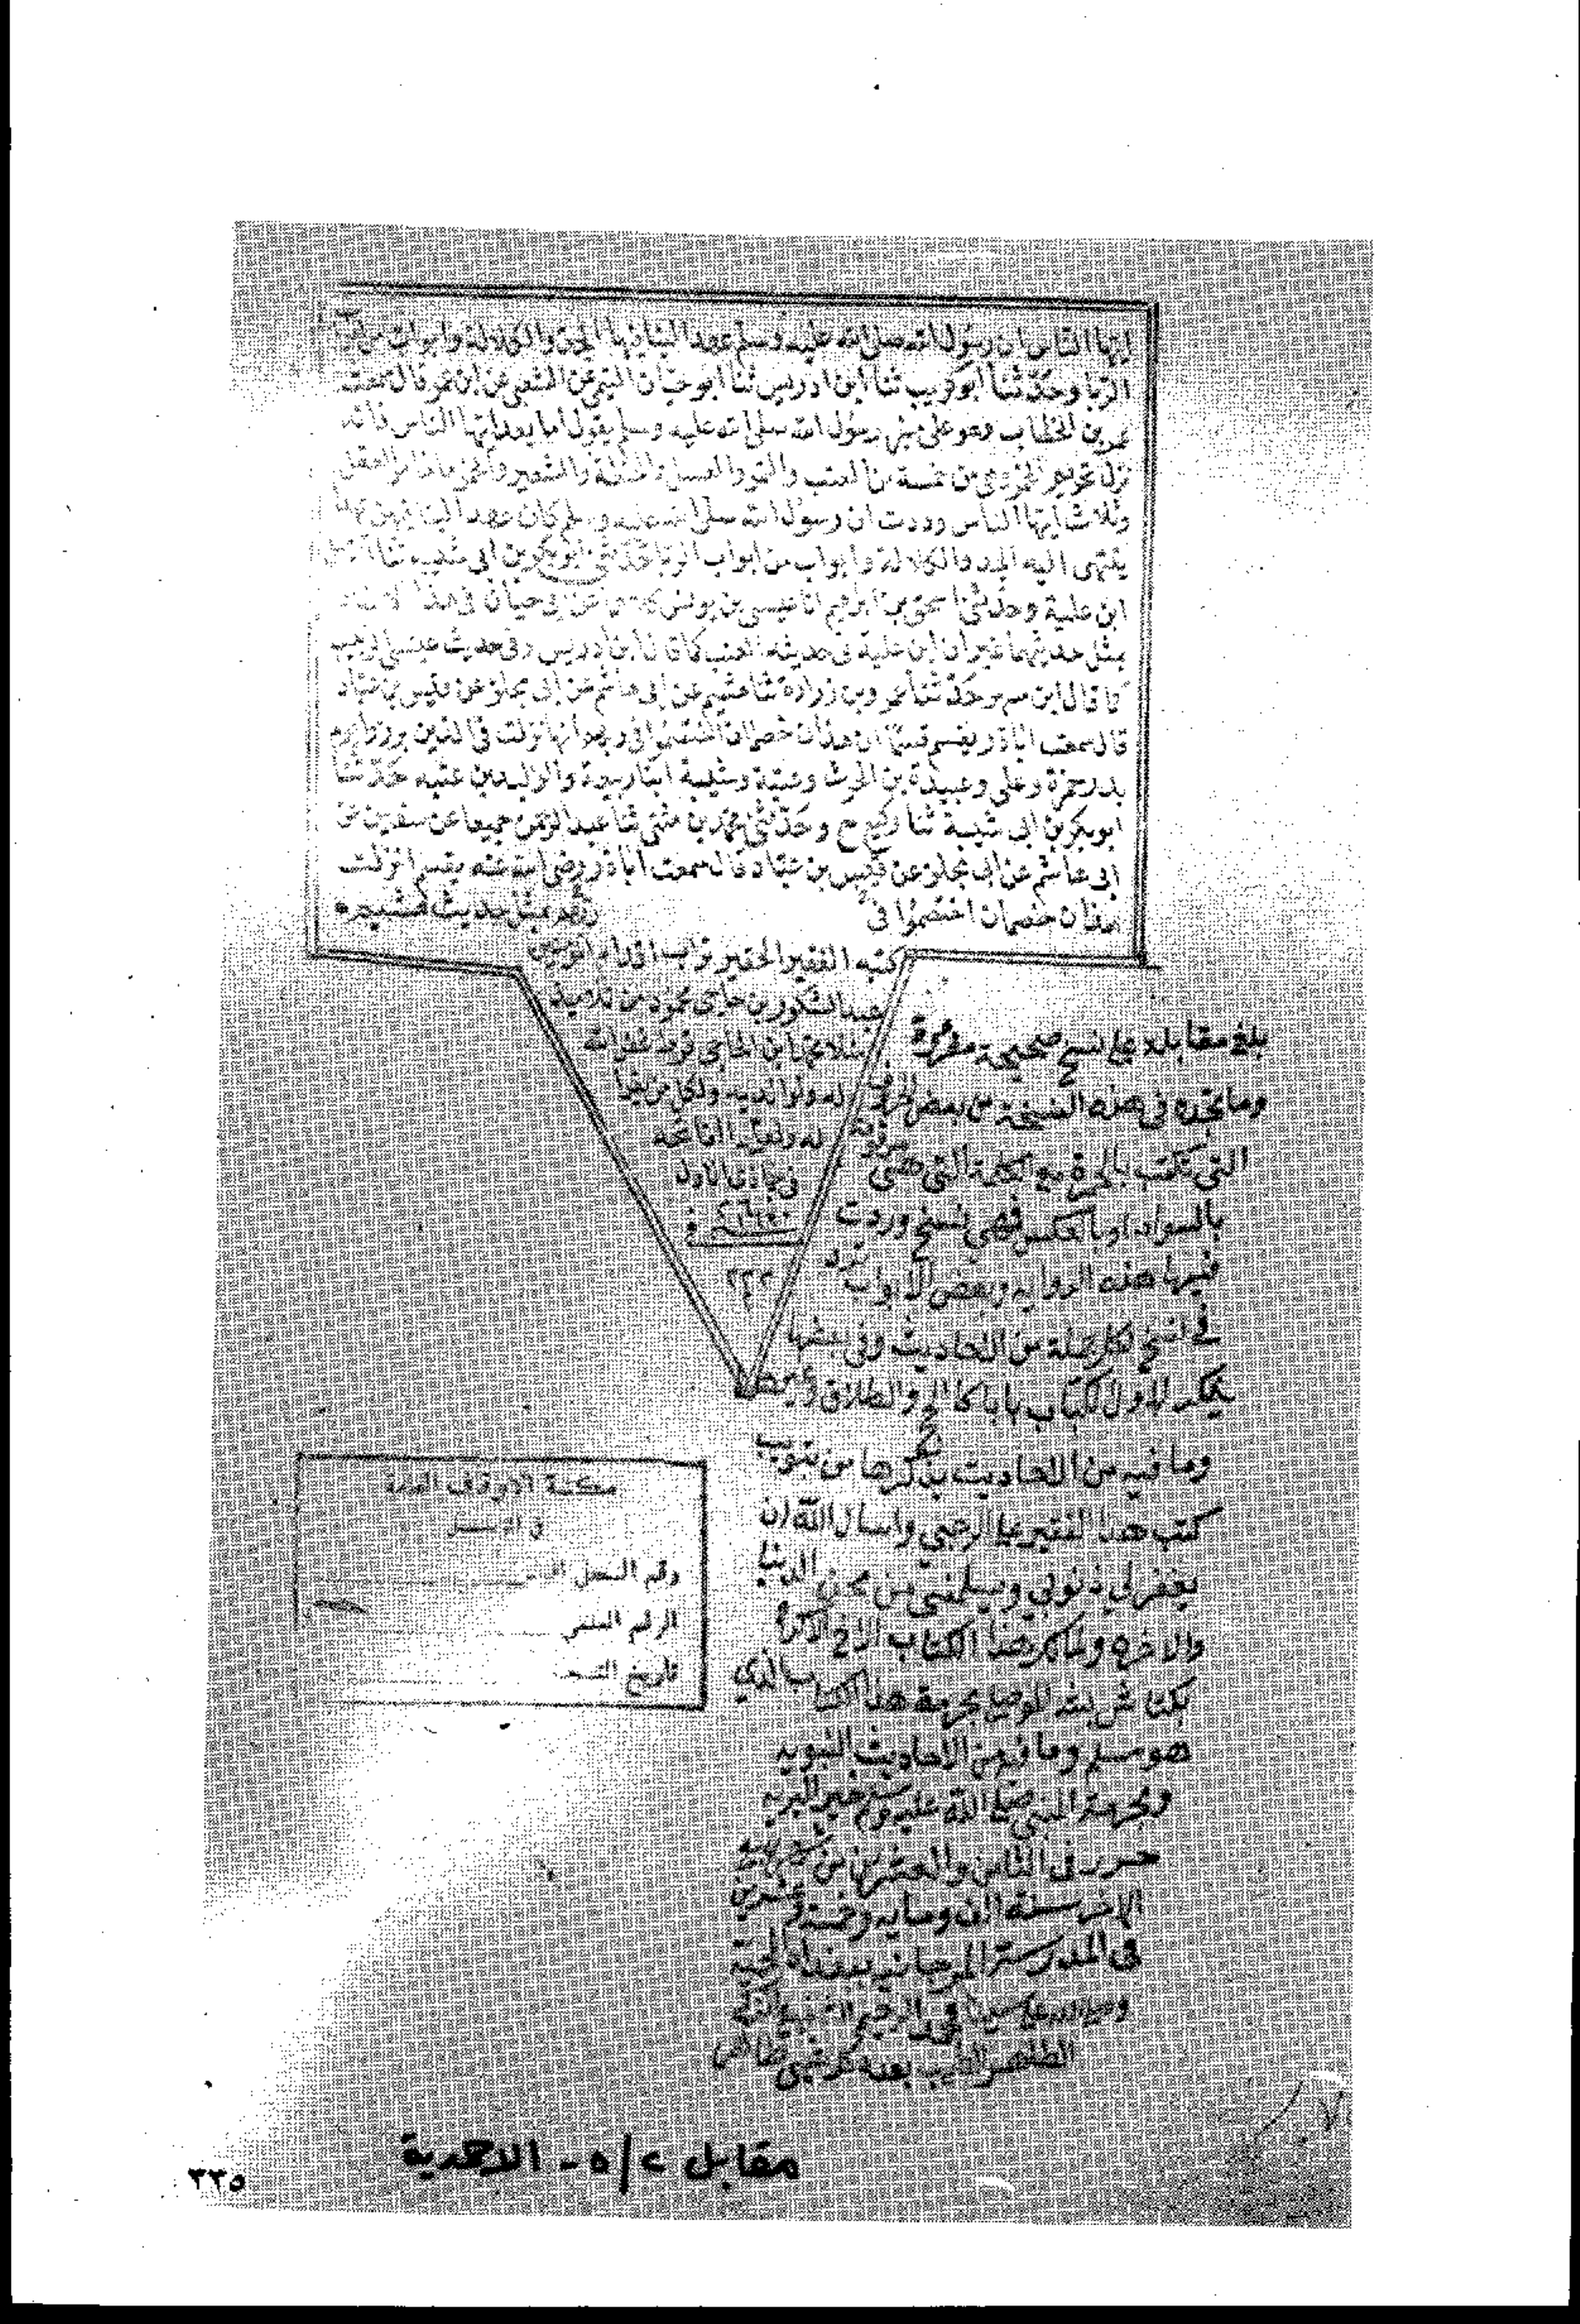 ايها الناس ان رسول الله صلى الله عليه وسلم عهد الينا فيها الجد والكلالة وابواب من ابواب
الربا وحدثنا ابو كريب ثنا ابن ادريس ثنا ابو حيان التيمي عن الشعبي عن ابن عمر قال سمعت
عمر بن الخطاب وهو على منبر رسول الله صلى الله عليه وسلم يقول اما بعد ايها الناس فانه
نزل تحريم الخمر وهي من خمسة من العنب والتمر والعسل والحنطة والشعير والخمر ما خامر العقل
وثلاث ايها الناس وددت ان رسول الله صلى الله عليه وسلم كان عهد الينا فيهن عهدا
ينتهى اليه الجد والكلالة وابواب من ابواب الربا وحدثنا ابو بكر بن ابى شيبه ثنا اسمعيل
ابن علية وحدثنا اسحق بن ابراهيم انا عيسى بن يونس كلاهما عن ابى حيان فى هذا الاسناد
بمثل حديثهما غير ان ابن علية فى حديثه العنب كما قال ابن ادريس وفى حديث عيسى الزبيب
كما قال ابن مسهر حدثنا عمرو بن زرارة ثنا هشيم عن ابى هاشم عن ابى مجلز عن قيس بن عباد
قال سمعت اباذر يقسم قسما ان هذان خصمان اختصموا فى ربهم انها نزلت فى الذين برزوا يوم
بدر حمزة وعلى وعبيدة بن الحرث وعتبة وشيبة ابنا ربيعة والوليد بن عتبه حدثنا
ابو بكر بن ابى شيبة ثنا وكيع ح وحدثنى محمد بن مثنى ثنا عبد الرحمن جميعا عن سفين عن
ابى هاشم عن ابى مجلز عن قيس بن عباد قال سمعت اباذر رضى الله عنه يقسم لنزلت
هذان خصمان اختصموا فى ربهم بمثل حديث هشيم
كتبه الفقير الحقير تراب اقدام المؤمنين
عبد الشكور بن حاجى محمود من تلاميذ
له ولوالديه ولكل من يقرأ
الفاتحه
فى جمادى الاول
٢٢٢
بلغ مقابلة على نسخ صحيحة مقروءة
وما تجده فى هذه النسخة من بعض الحروف
التى تكتب بالحمرة مع الكلمة التى هى مرقومة
بالسواد او بالعكس فهى نسخ وردت
فيها هذه الروايه وبعض الابواب ترد
فى نسخ لكل جملة من الاحاديث وفى بعضها
يذكر لاول الكتاب بابا كالحج والطلاق وغيرها
وما فيه من الاحاديث يذكرها من تبويب
كتب هذا الفقير علي الرحبي واسال الله ان
يغفر لي ذنوبي ويسلمني من محن الدنيا
والاخره ولمالك هذا الكتاب الاخ الاكرم
بكتاش الموصلي بحرمة هذا الكتاب الذي
هو مسلم وما فيه من الاحاديث النبويه
وبحرمة النبي صلى الله عليه وسلم خير البريه
حرر فى الثامن والعشرين من شهر ربيع
الاخر سنة الف ومايه وخمسة وعشرين
فى المدرسة المرجانيه ببغداد المحمية
وصلى الله على سيدنا محمد
الطاهر
مكتبة الاوقاف العامة
فى الموصل
رقم السجل
الرقم
تاريخ
مقابل ٥/٢ - الاحمدية
٢٢٥